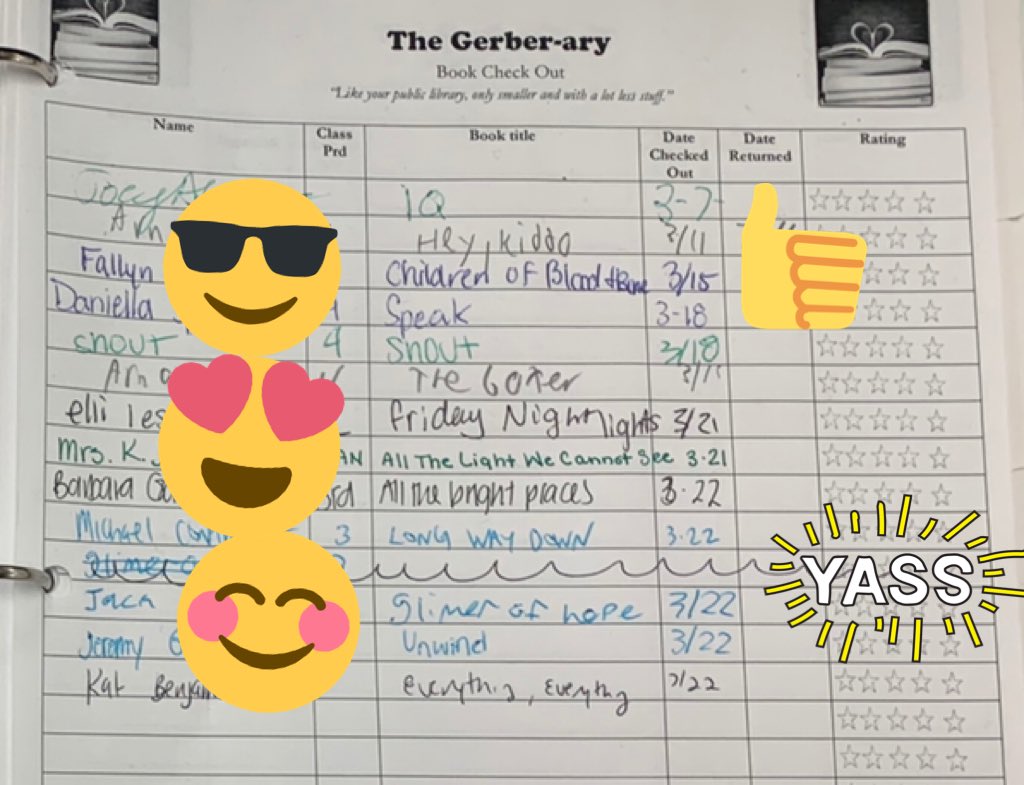 The Gerber-ary
Book Check Out
"Like your public library, only smaller and with a lot less stuff."
Name Class Prd Book title Date Checked Out Date Returned Rating
Joey IQ 3-7
Hey, kiddo 3/11
Fallyn Children of Blood + Bone 3/15
Daniella Speak 3-18
snout 4 Snout 3/18
The Boxer
elli Friday Night lights 3/21
Mrs. K. All The Light We Cannot See 3-21
Barbara All the bright places 3-22
Michael 3 LONG WAY DOWN 3-22
YASS
Jack Slimer of hope 3/22
Jeremy Unwind 3/22
Kat Everything, Everything 3/22